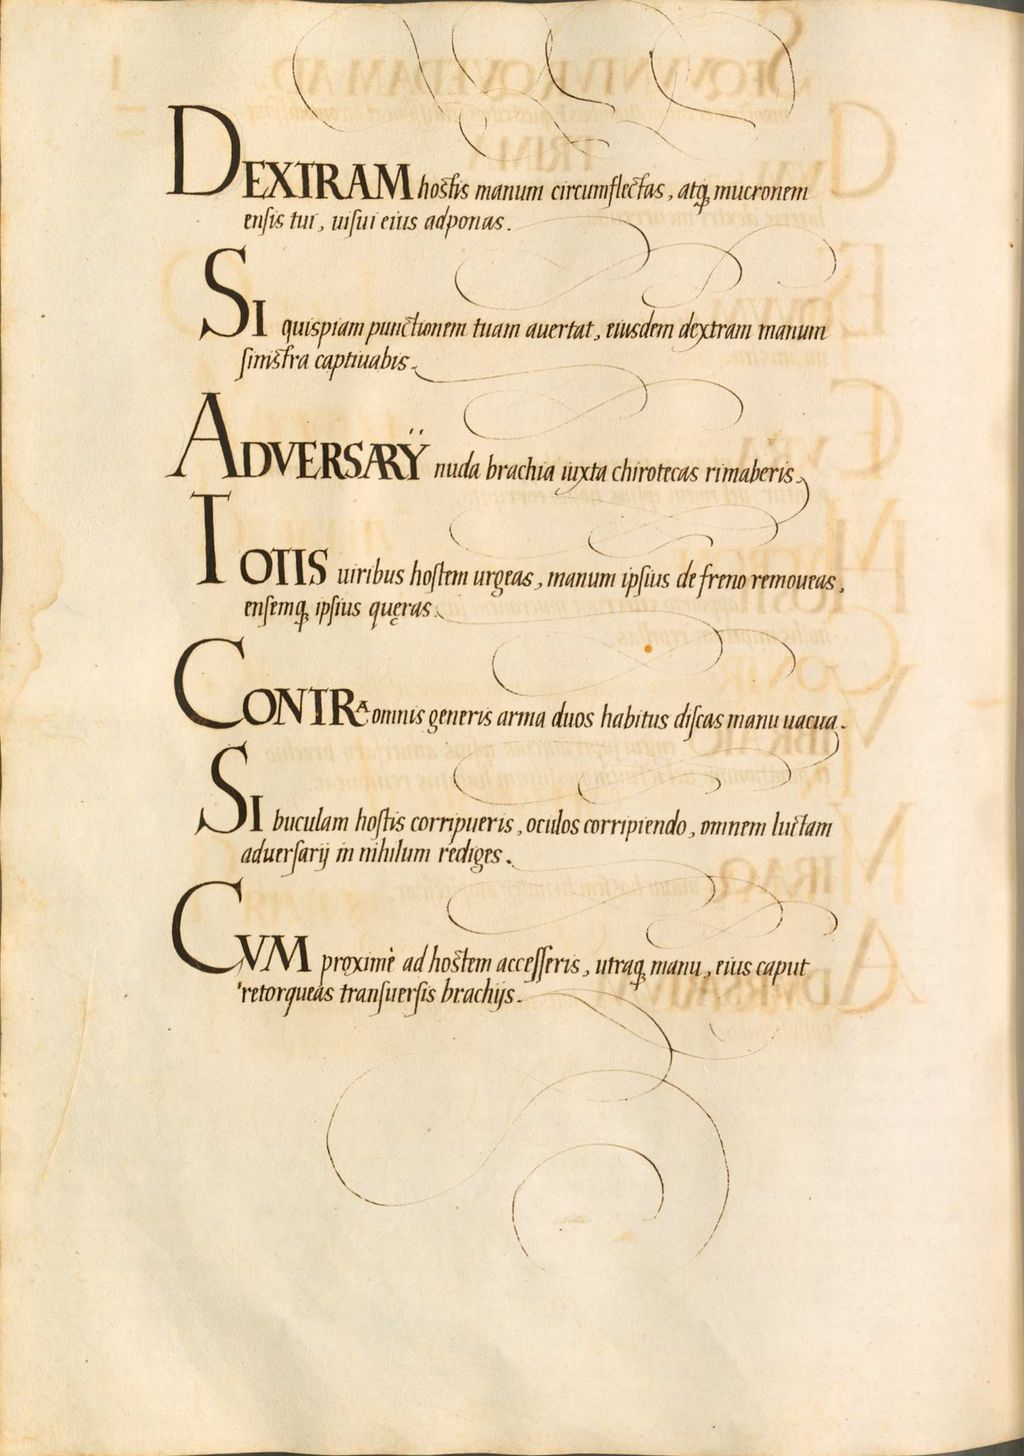 DEXTRAM hostis manum circumflectas, atq; mucronem
ensis tui, uisui eius adponas.
SI quispiam punctionem tuam auertat, eiusdem dextram manum
sinistra captiuabis.
ADVERSARŸ nuda brachia iuxta chirotecas rimaberis,
TOTIS uiribus hostem urgeas, manum ipsius de freno remoueas,
ensemq; ipsius quęras.
CONTRA omnis generis arma duos habitus discas manu uacua.
SI buculam hostis corripueris, oculos corripiendo, omnem luctam
aduersarij in nihilum rediges.
CVM proximè ad hostem accesseris, utraq; manu, eius caput
retorqueas transuersis brachijs.